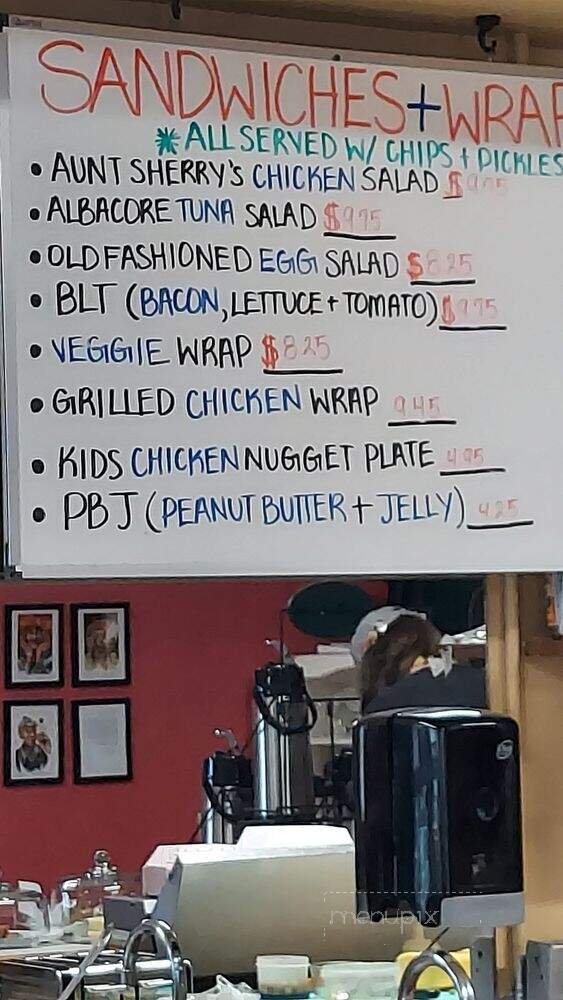 SANDWICHES + WRAP
* ALL SERVED W/ CHIPS + PICKLES
• AUNT SHERRY'S CHICKEN SALAD $9.75
• ALBACORE TUNA SALAD $9.75
• OLD FASHIONED EGG SALAD $8.25
• BLT (BACON, LETTUCE + TOMATO) $9.75
• VEGGIE WRAP $8.25
• GRILLED CHICKEN WRAP 9.45
• KIDS CHICKEN NUGGET PLATE 4.95
• PBJ (PEANUT BUTTER + JELLY) 4.25
menupix